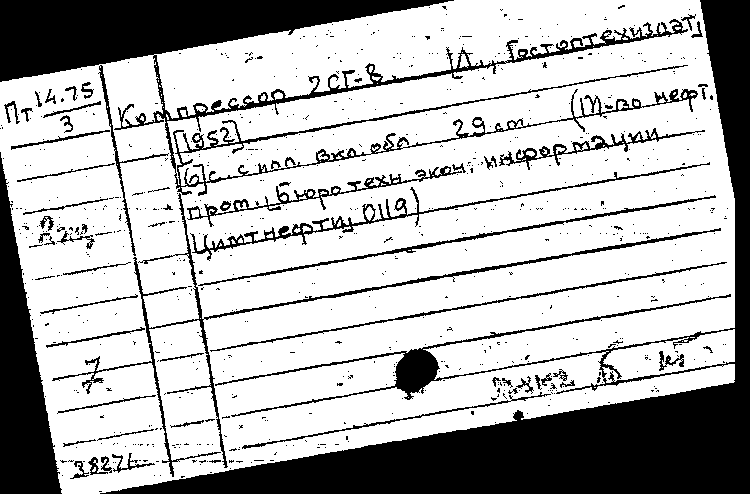 Пт 14.75
3
Компрессор 2СГ-8. [Л., Гостоптехиздат,
[1952]
[6] с. с илл. вкл. обл. 29 см. (М-во нефт.
пром., Бюро техн. экон. информации
Цимтнефти, 0119)
7
38271